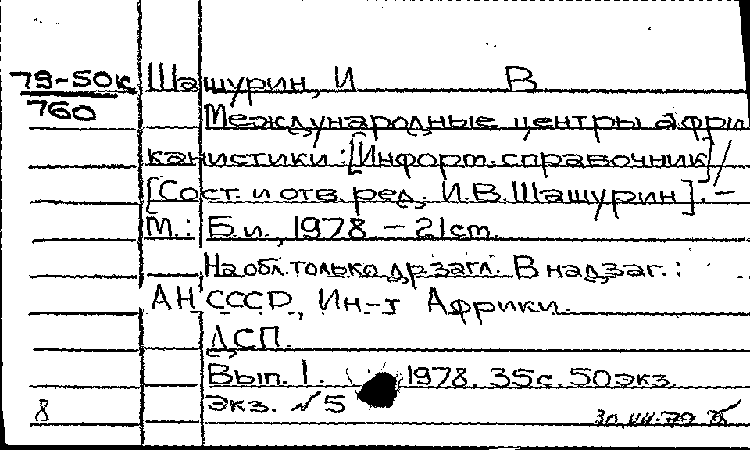 79-50к Шашурин, И В
760 Международные центры афри
канистики : [Информ. справочник] /
[Сост. и отв. ред. И.В. Шашурин]. –
М. : Б.и., 1978 – 21 см.
На обл. только др. загл. В надзаг. :
АН СССР, Ин-т Африки.
ДСП.
Вып. 1. 1978. 35 с. 50 экз.
Экз. № 5
8